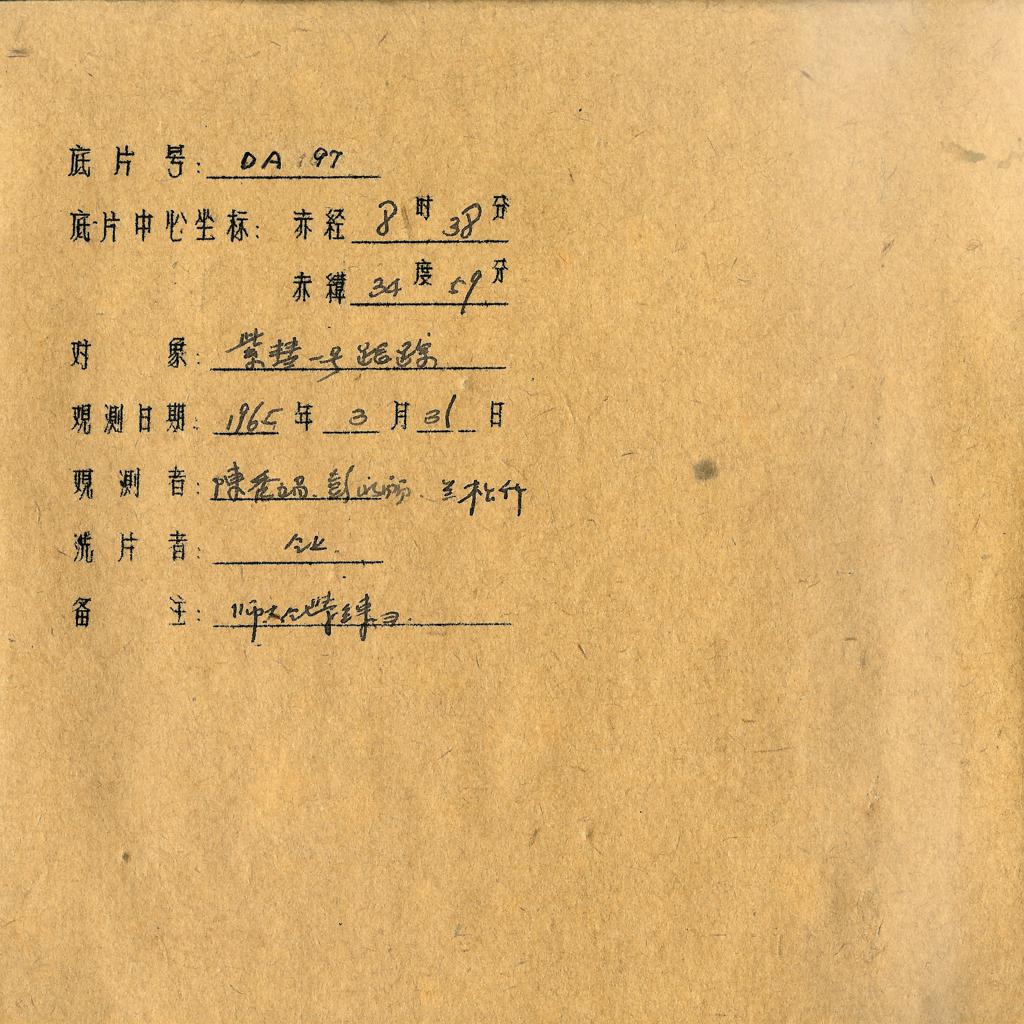 底片号: DA 197
底片中心坐标: 赤经 8 时 38 分
赤緯 34 度 59 分
对象: 紫彗一号 跟踪
观测日期: 1965 年 3 月 31 日
观测者: 陳 彭 松竹
洗片者:
备注: 师大